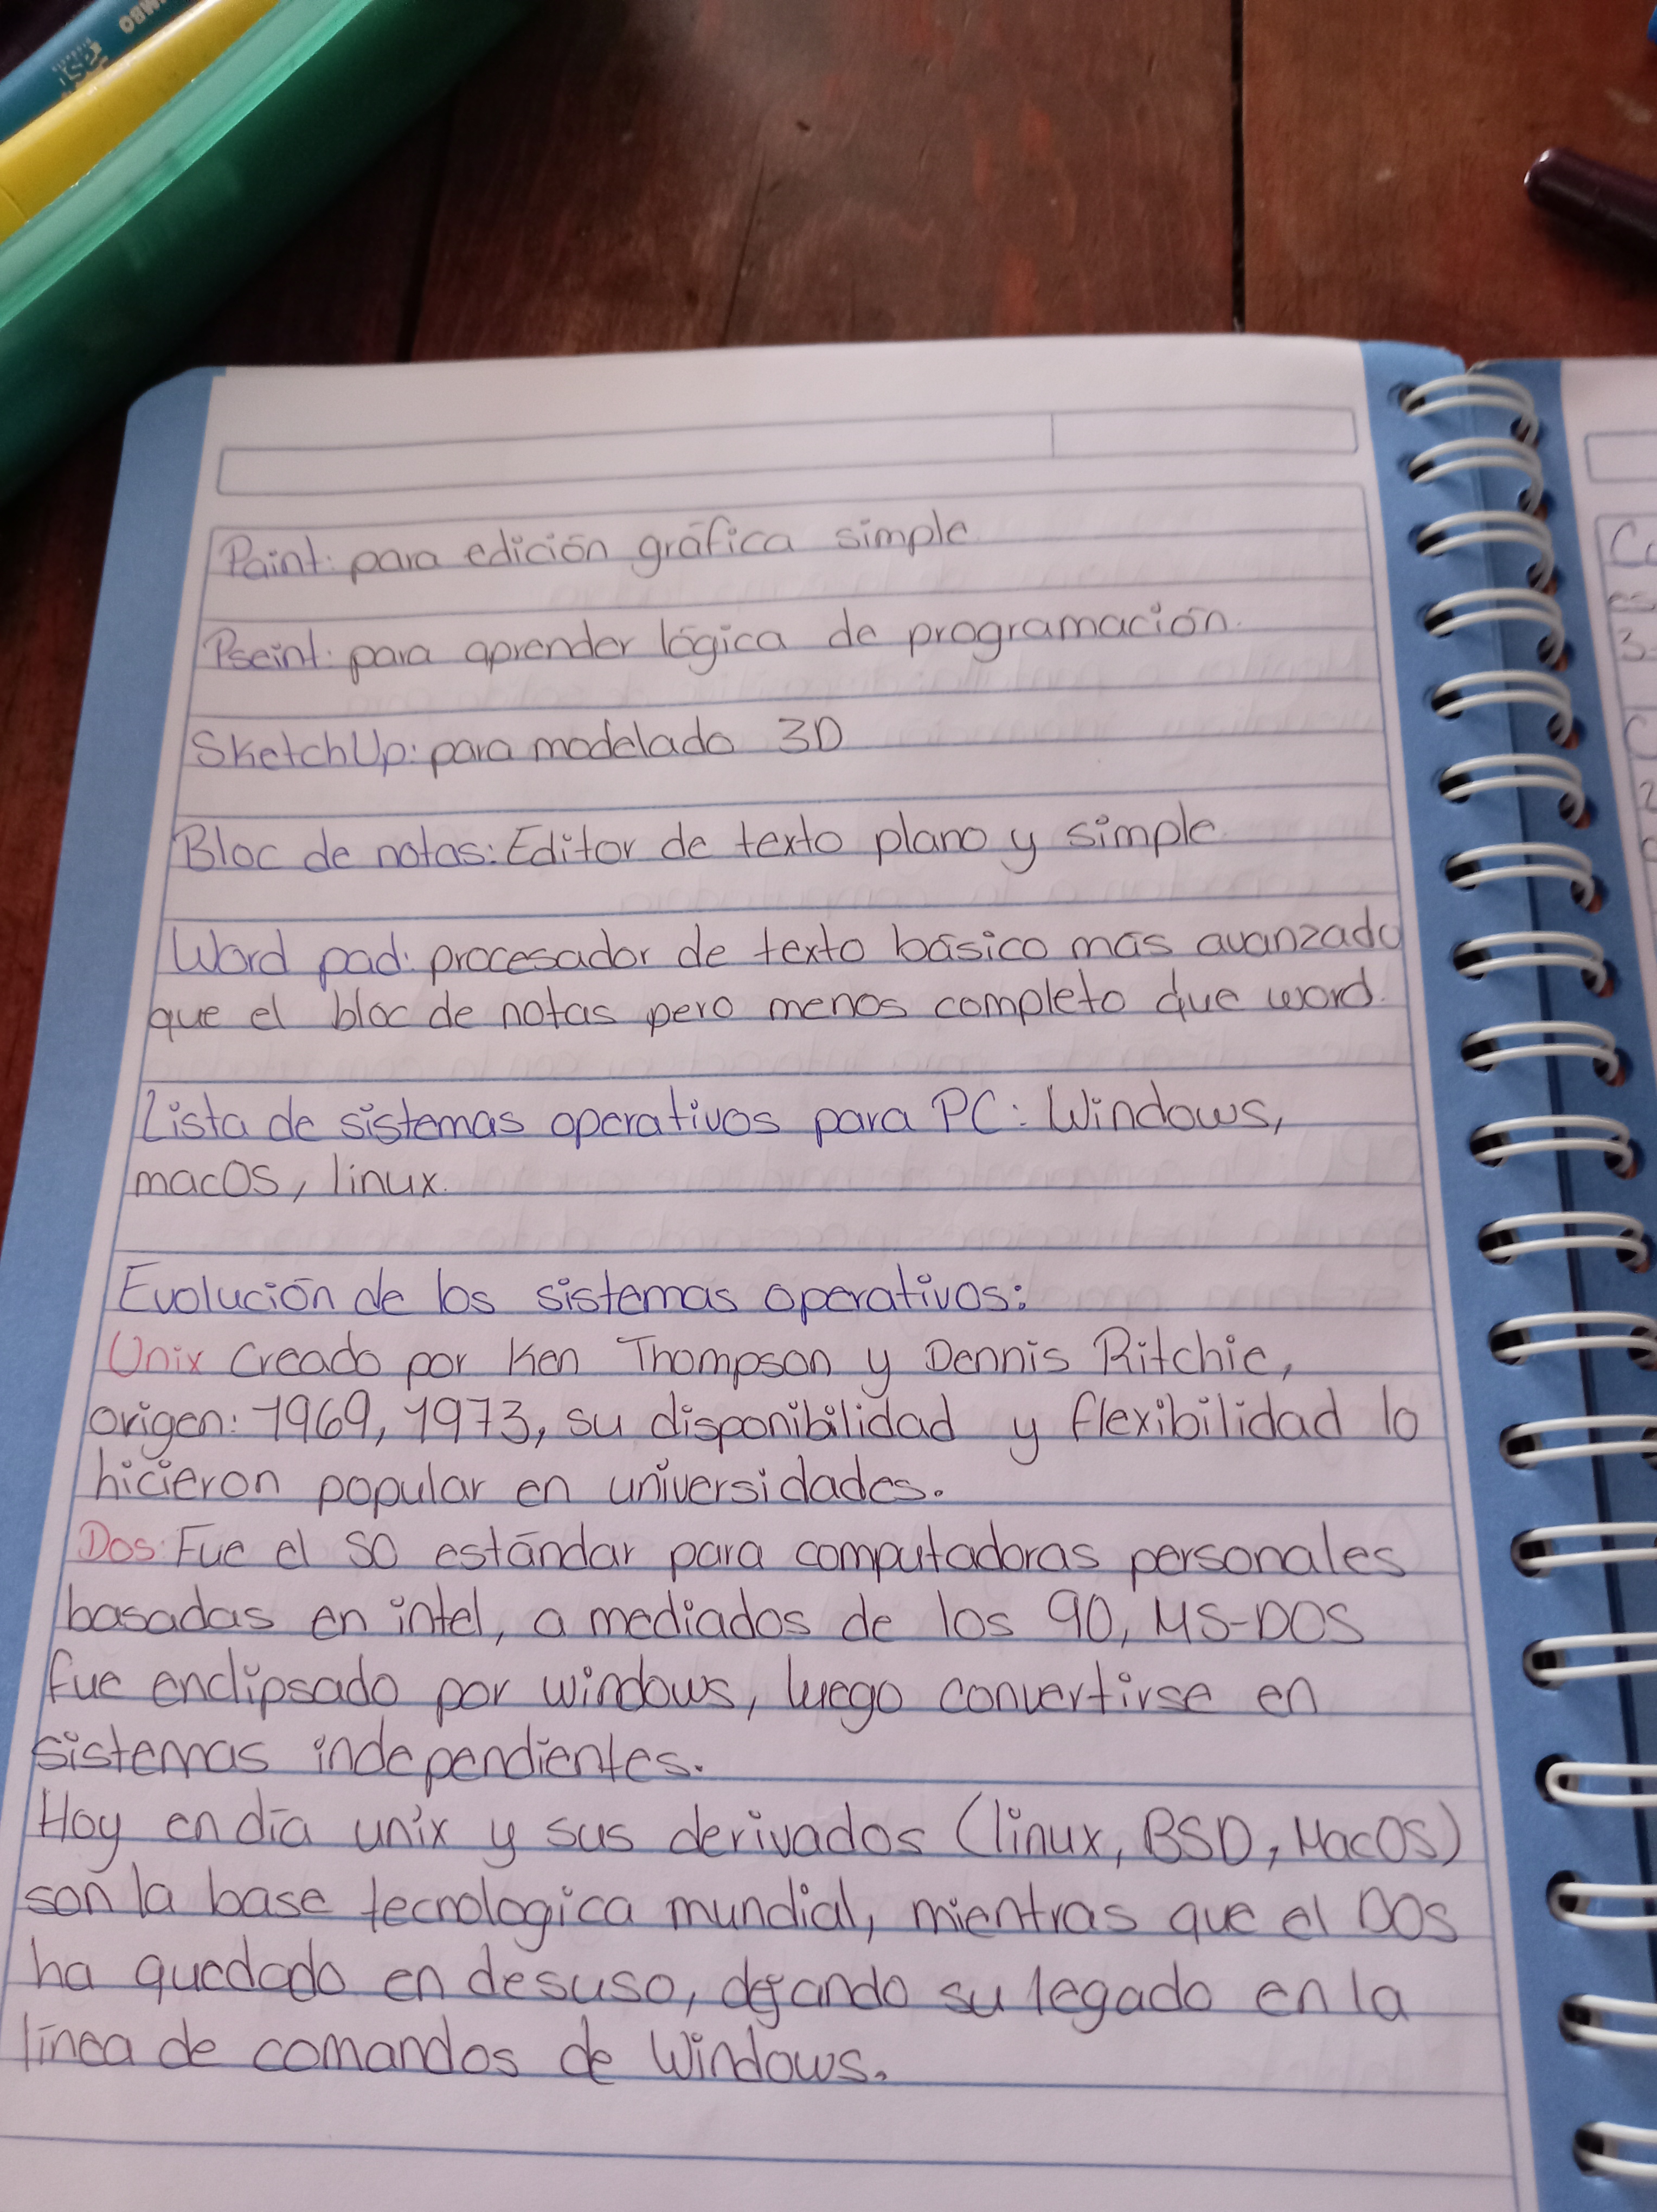 Paint: para edición gráfica simple
Pseint: para aprender lógica de programación.
SketchUp: para modelado 3D
Bloc de notas: Editor de texto plano y simple
Word pad: procesador de texto básico más avanzado
que el bloc de notas pero menos completo que word.
Lista de sistemas operativos para PC: Windows,
macOS, linux.
Evolución de los sistemas operativos:
Unix Creado por Ken Thompson y Dennis Ritchie,
origen: 1969, 1973, su disponibilidad y flexibilidad lo
hicieron popular en universidades.
Dos: Fue el SO estándar para computadoras personales
basadas en intel, a mediados de los 90, MS-DOS
fue enclipsado por windows, luego convertirse en
sistemas independientes.
Hoy en día unix y sus derivados (linux, BSD, MacOS)
son la base tecnologica mundial, mientras que el DOS
ha quedado en desuso, dejando su legado en la
línea de comandos de Windows.